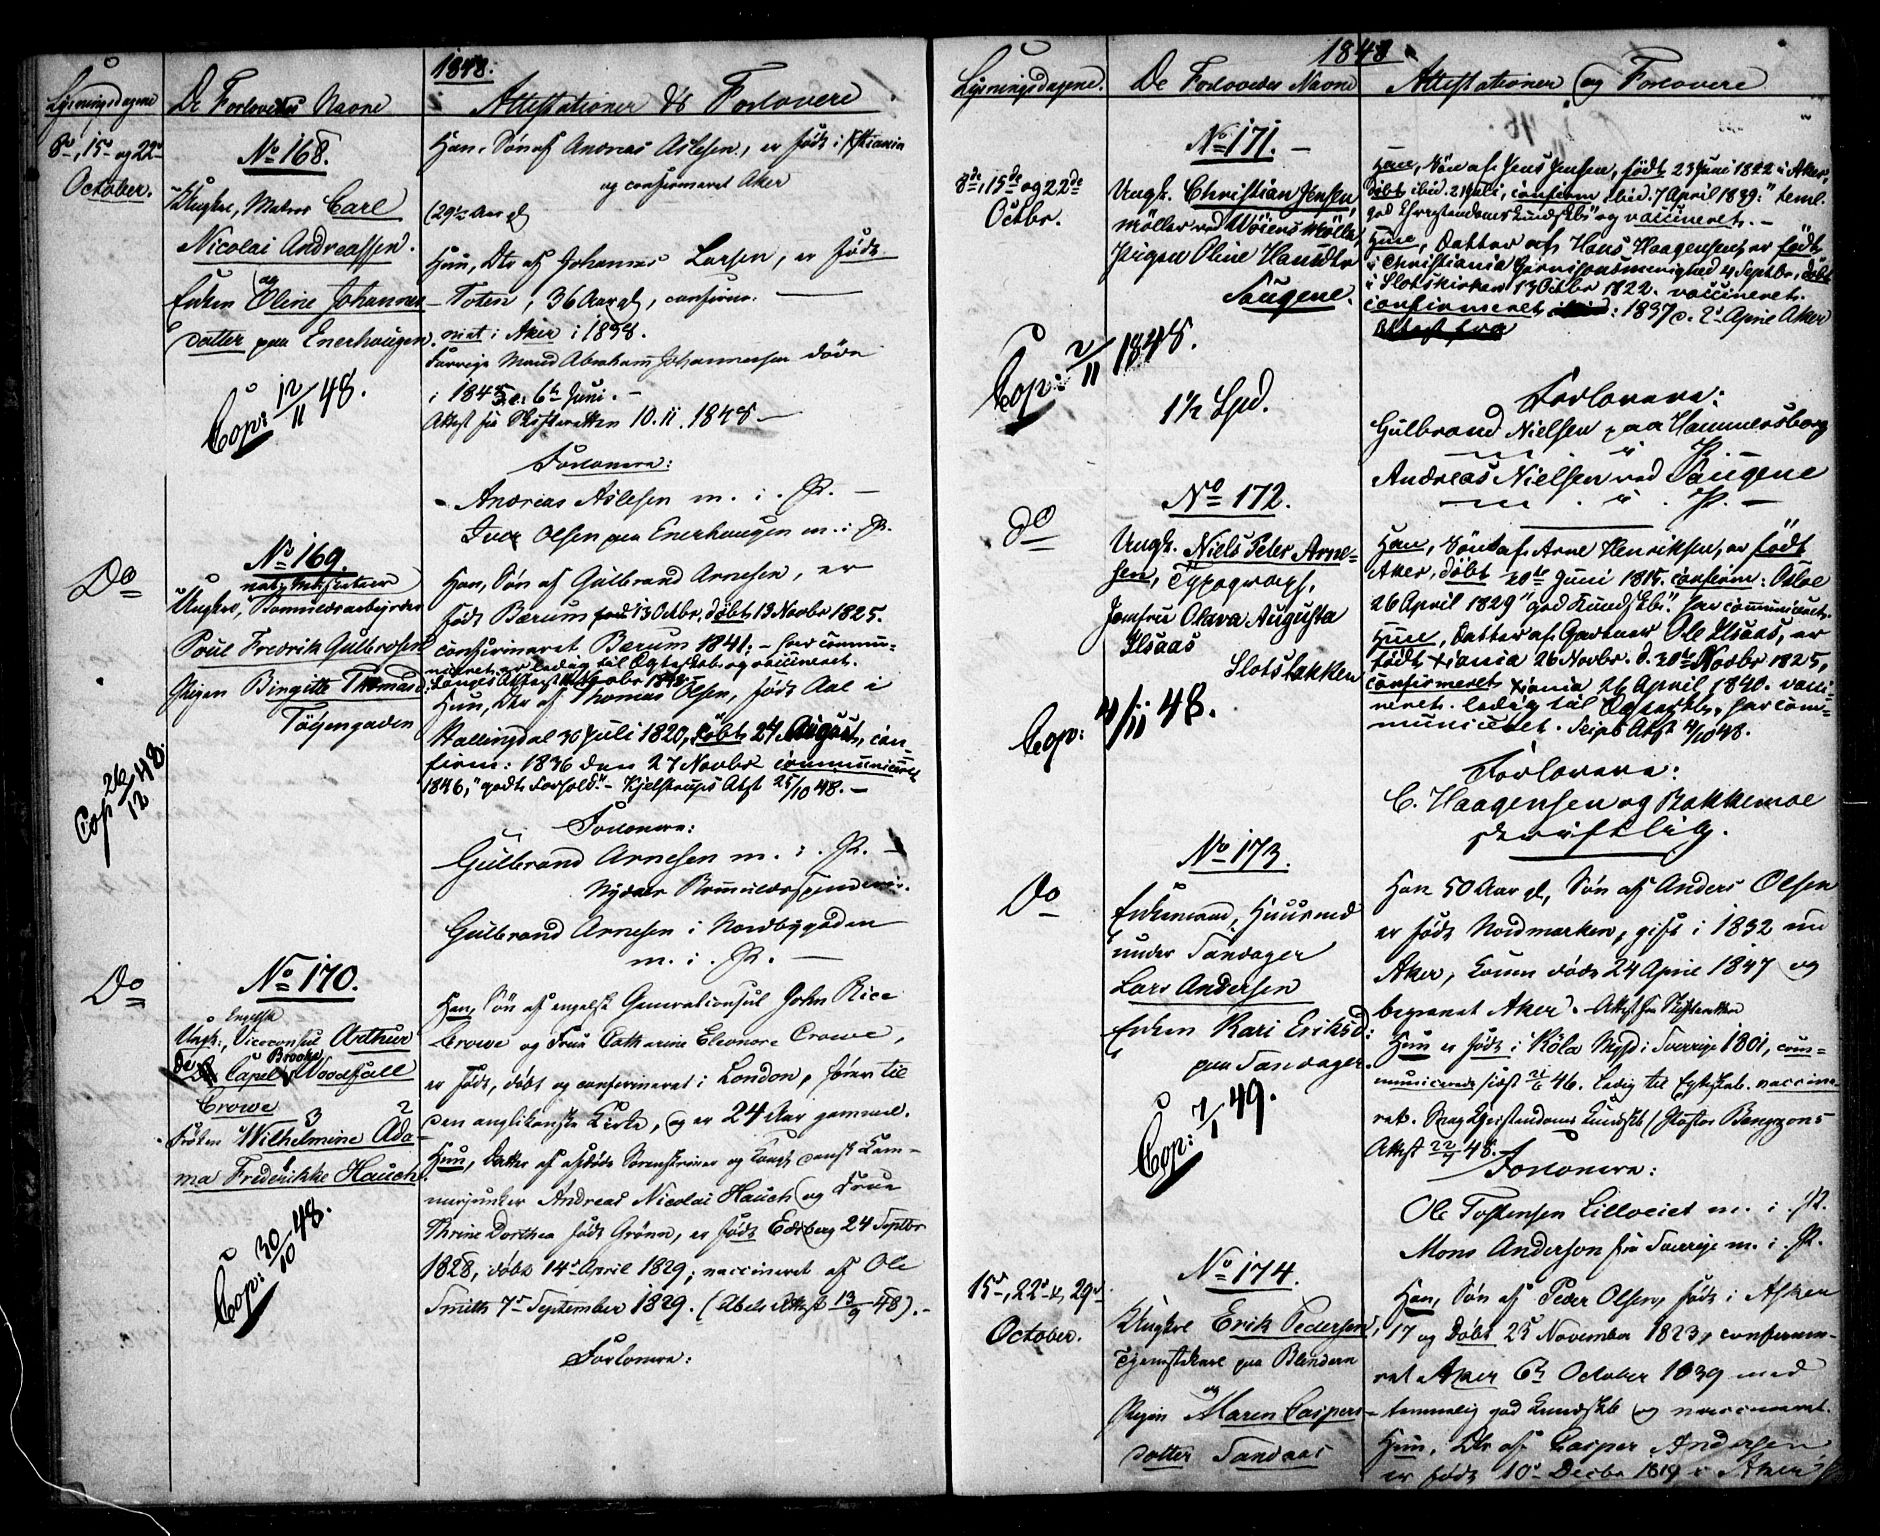 1848.
Lysningsdagene
De Forlovedes Navne
Attestationer & Forlovere
8de, 15de og 22de
October.
No 168.
Ungkrl, Matros Carl
Nicolai Andreassen
og
Enken Oline Johannes
datter paa Enerhaugen.
Cop: 12/11 48.
Han, Søn af Andreas Aslesen, er født i Xstiania
og confirmeret Aker
(29½ Aar gl)
Hun, Dtr af Johannes Larsen, er født
Toten, 36 Aar gl, confirme-
ret i Aker i 1838.
Forrige Mand Abraham Johannessen døde
i 1845 d: 6te Juni. -
Attest fra Skifteretten 10.11.1848 -
Forlovere:
- Andreas Aslesen m. i. P. -
Iver Olsen paa Enerhaugen m. i. P.
Do
No 169.
Ungkrl, Bomuldsarbejder
Poul Fredrik Gulbrdsen
Pigen Birgitte Thomasd.
Tøfsengaden
Cop 26/12 48
Han, Søn af Gulbrand Arnesen, er
født Bærum 13 Octbr, døbt 13 Novbr 1825.
confirmeret Bærum 1841; - har commu-
niceret er ledig til Ægteskab og vaccineret.
Hun, Dtr af Thomas Olsen, født Aal i
Hallingdal 30 Juli 1820, døbt 27 August, con-
firm: 1836 den 27 Novbr communiceret
1846, "godt Forhold." - Kjelstrups Atst 25/10 48. -
Forlovere:
Gulbrand Arnesen m. i. P. -
Nydens Bomuldsspinderi.
Gulbrand Arnesen i Nordbygaden
m. i. P. -
Do
No 170.
Engelsk
Ungk:, Viceconsul Arthur
de Capel Brooke Woodfall
Crowe
3 2
Frøken Wilhelmine Ada-
ma Frederikke Hauch
Cop: 30/10 48.
Han, Søn af engelsk Generalconsul John Rice
Crowe og Frue Catharine Eleonore Crowe,
er født, døbt og confirmeret i London, hører til
den anglikanske Kirke, og er 24 Aar gammel.
Hun, Datter af afdøde Sorenskriver og Kongl dansk Kam-
merjunker Andreas Nicolai Hauch og Frue
Thrine Dorthea født Grønn, er født Edsberg 24 Septbr
1828, døbt 14de April 1829; vaccineret af Ole
Smith 7de September 1829. (Abels Attest 13/9 48). -
Forlovere:
1848.
Lysningsdagene.
De Forlovedes Navne
Attestationer og Forlovere
8de, 15de og 22de
Octbr.
No 171. -
Ungk. Christian Jensen,
Møller ved Vøiens Mølle,
Pigen Oline Hansdtr
Saugene.
Cop: 2/11 1848.
1½ Spd.
Han, Søn af Jens Jensen, født 23 Juni 1822 i Aker,
døbt ibid. 21 Juli, confirm. ibid. 7 April 1839: "teml.
god Christendomskundskb" og vaccineret. -
Hun, Datter af Hans Haagensen, er født
i Christiania Garnisonsmenighed 4 Septbr, døbt
i Slotskirken 13 Octbr 1822. vaccineret.
confirmeret: 1837 d. 2de April Aker
Forlovere:
Gulbrand Nielsen paa Hammersborg
m. i. P.
Andreas Nielsen ved Saugene
m. i. P. -
do
No 172.
Ungk. Niels Peter Arne-
sen, Typograph,
Jomfru Olava Augusta
Ilsaas
Slotsbakken
Cop: 4/11 48.
Han, Søn af Arne Henriksen, er født
Aker, døbt 20de Juni 1815. confirm: Oslo
26 April 1829 "god Kundskb". har communiceret.
Hun, Datter af Gartner Ole Ilsaas, er
født Xiania 26 Novbr. d. 30te Novbr 1825,
confirmeret Xiania 26 April 1840. vacci-
neret. ledig til Ægteskb, har com-
municeret.
Forlovere:
C. Haagensen og Bakkemoe
skriftlig.
Do
No 173.
Enkemand, Huusmd
under Sandager
Lars Andersen
Enken Kari Eriksd:
paa Sandager.
Cop: 7/1 49.
Han 50 Aar gl, Søn af Anders Olsen
er født Nordmarken, gift i 1832 nu
Aker, Konen døde 24 April 1847 og
begravet Aker. - Attest fra Skifteretten
Hun er født i Köla Sogn i Sverrige 1801, com-
municerede sidst 21/6 46. Ledig til Egteskab. vaccine-
ret. Svag Christendoms Kundskb (Pastor Bengzons
Attest 22/9 48.
Forlovere:
Ole Tostensen Lilloeiet m. i. P.
Mons Anderson fra Sverrige m. i. P.
15de, 22de & 29de
October.
No 174.
Ungkrl Erik Pedersen,
Tjenestekarl paa Blindern
og
Pigen Maren Caspers-
datter Sandaas
Han, Søn af Peder Olsen, født i Asker
17 og døbt 25 November 1823, confirme-
ret Aker 6te October 1839 med
temmelig god Kundskb og vaccineret.
Hun, Dtr af Casper Andersen
er født 10de Decbr 1819 i Aker